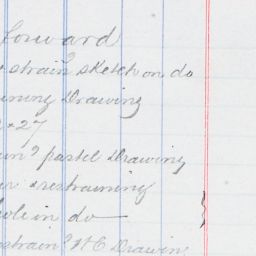 forward
strain? sketch on do
ining Drawing
27
in? pastel Drawing
restraining
in do
strain? H C Drawing